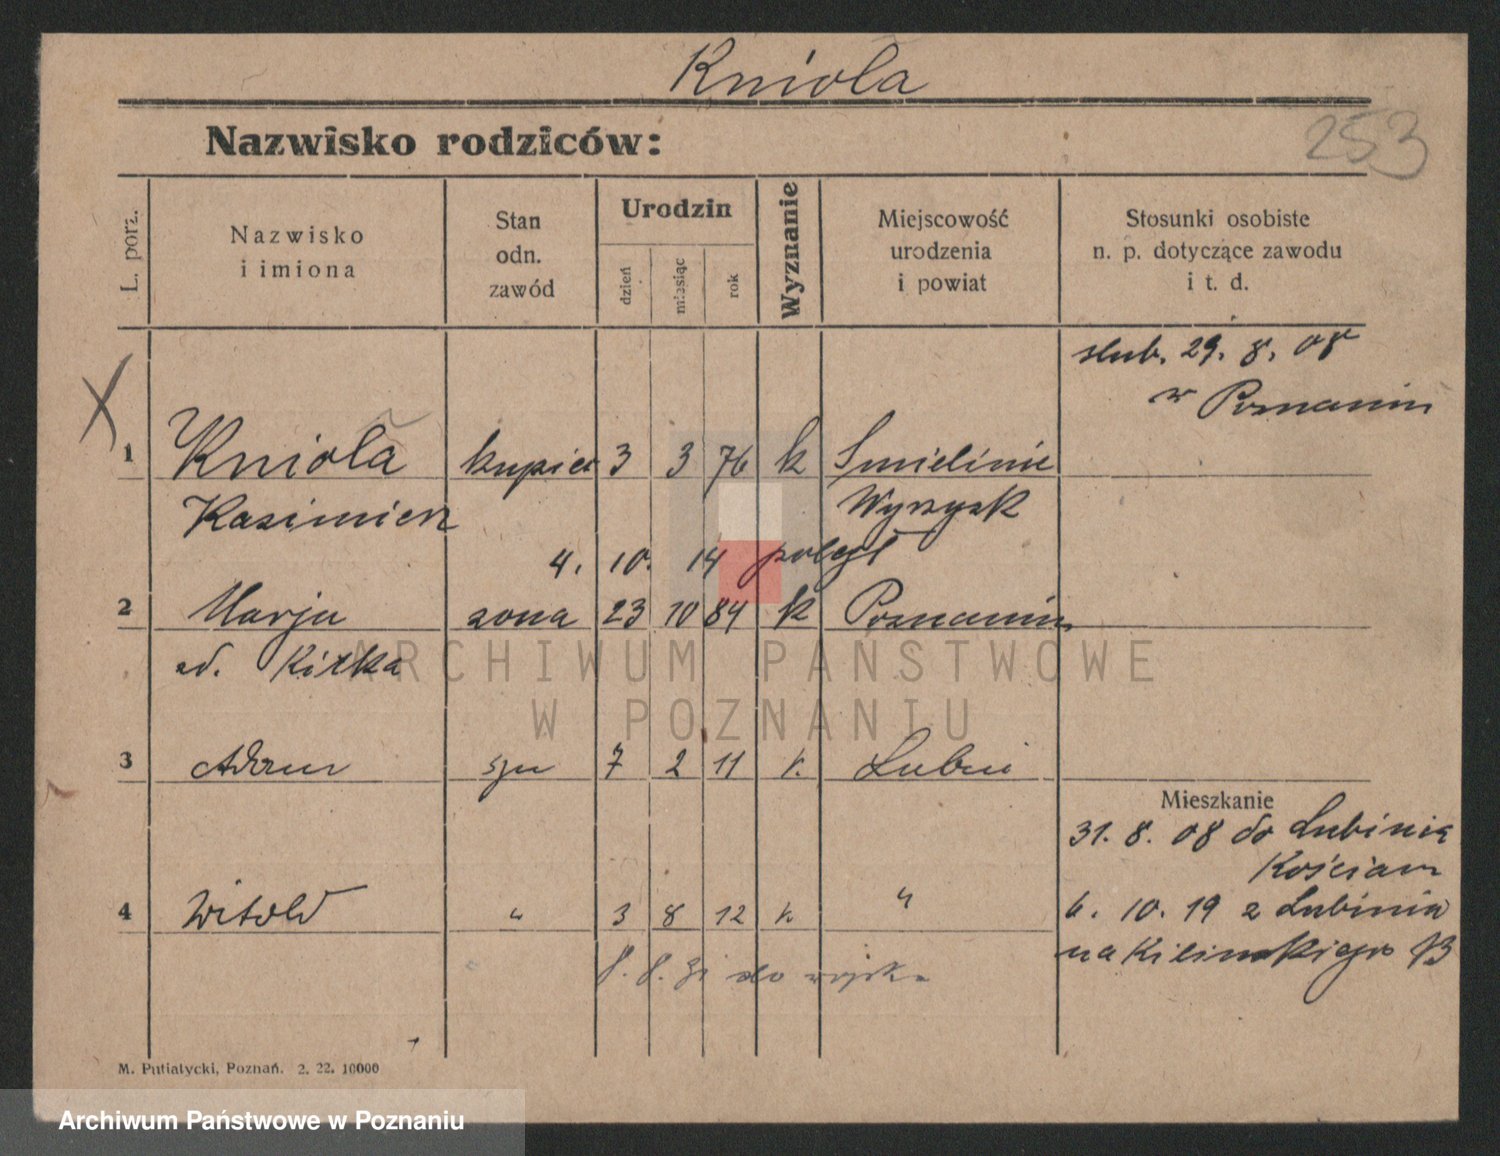 Kniola
253
Nazwisko rodziców:
L. porz.
Nazwisko i imiona
Stan odn. zawód
Urodzin
dzień
miesiąc
rok
Wyznanie
Miejscowość urodzenia i powiat
Stosunki osobiste n. p. dotyczące zawodu i t. d.
ślub. 29. 8. 08
w Poznaniu
1 Kniola kupiec 3 3 76 k Smielinie
Kasimierz Wyrzysk
4. 10. 14 poległ
2 Marja żona 23 10 84 k Poznaniu
zd. Kitka
3 Adam syn 7 2 11 k. Lubin
Mieszkanie
31. 8. 08 do Lubinia
Kościan
4 Witold " 3 8 12 k. "
6. 10. 19 z Lubinia
na Kilinskiego 13
8. 8. 31 do wojska
M. Putiatycki, Poznań. 2. 22. 10000
ARCHIWUM PAŃSTWOWE
W POZNANIU
Archiwum Państwowe w Poznaniu